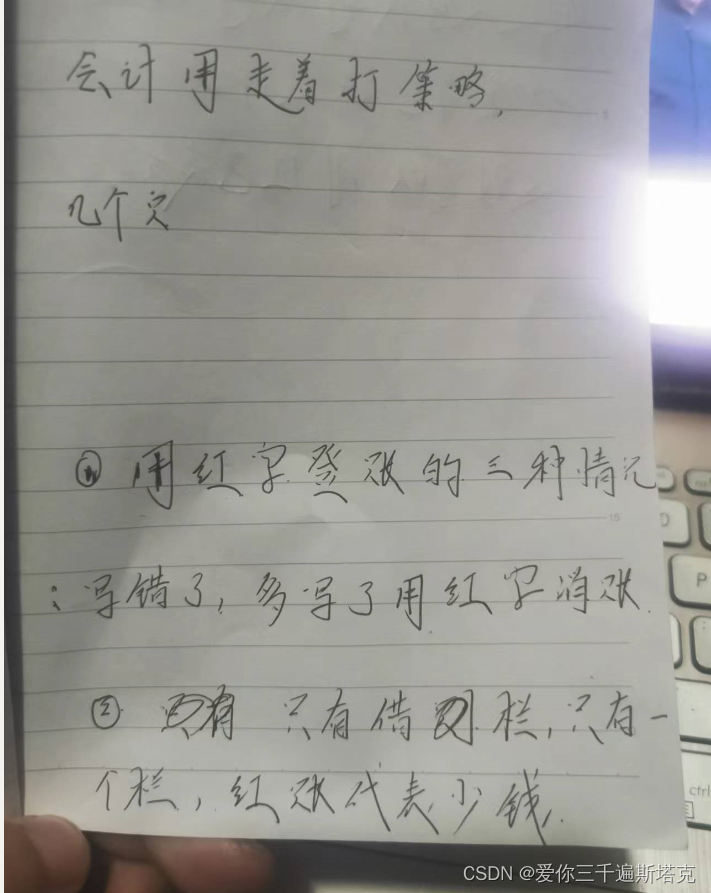 会计用走着打策略,
几个欠
① 用红字登账的三种情况
: 写错了, 多写了用红字消账.
② 只有借 栏, 只有一
个栏, 红账代表少钱.
CSDN @爱你三千遍斯塔克